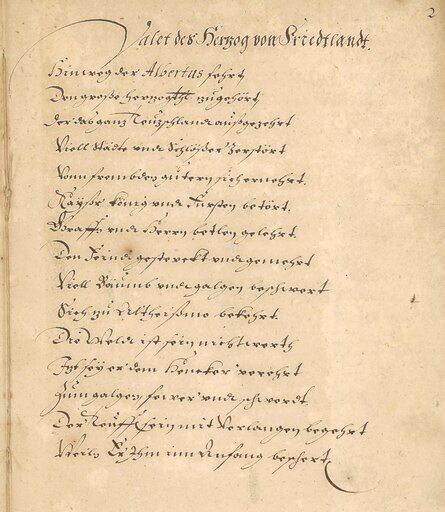 2
Valet des Hertzog von Friedtlandt.
Hinweg der Albertus fehrt
Der große hertzog zugehört
Der das ganz Teutzschland außgezehrt
Viell Städte vnd Schlößer Zerstört
Vonn frembden gütern sich ernehrt.
Kayßr König vnd Fürsten betört.
Graffn vnd Herrn betlen gelehrt.
Den Feind gesterckt vnd gemehrt
Viell Bäumb vnd galgen beschwert
Sich zu Altheißmo bekehrt.
Die Welt ist sein nicht werth
Itzt sey er dem Hencker verehrt
Zum galgen fewer vnd schwerdt
Der Teuffl sein mit Verlangen begehrt
Weils Er Ihm im Anfang beschert